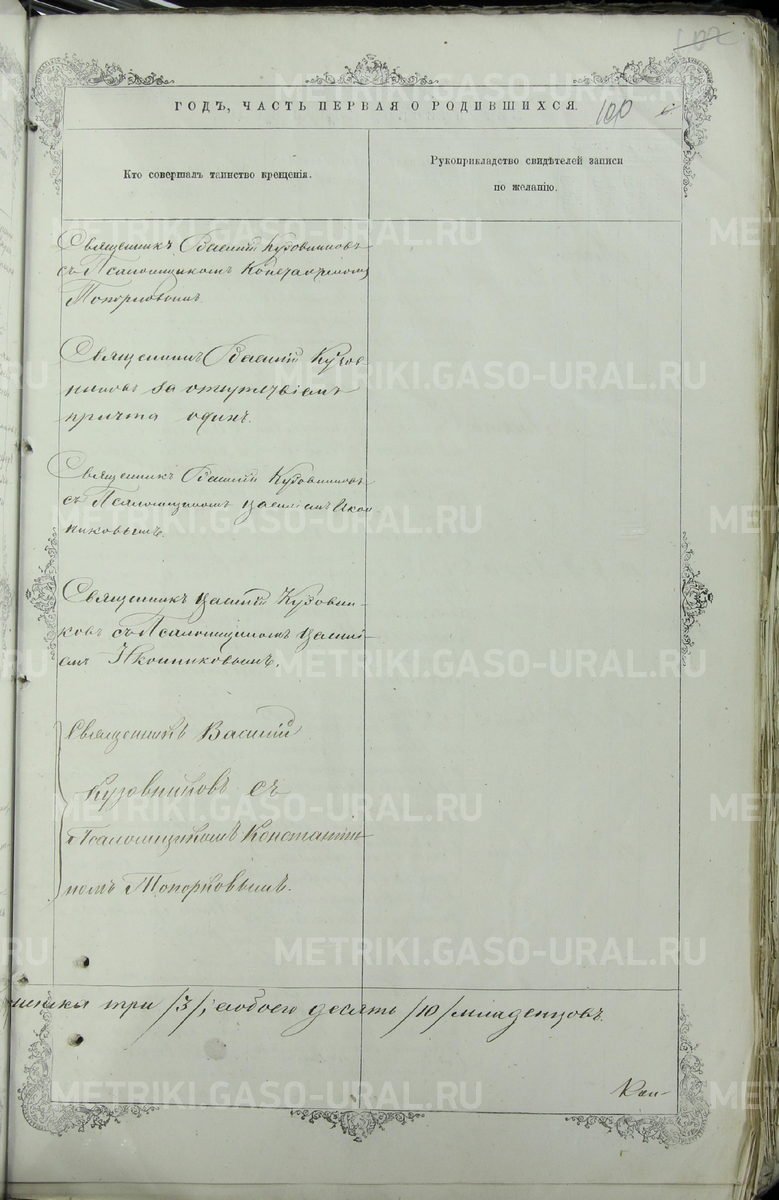 102
ГОДЪ, ЧАСТЬ ПЕРВАЯ О РОДИВШИХСЯ.
100
Кто совершалъ таинство крещенія.
Рукоприкладство свидѣтелей записи
по желанію.
Священникъ Василій Кузовниковъ
съ Псаломщикомъ Константиномъ
Топорковымъ.
Священникъ Василій Кузов
никовъ за отсутствіемъ
причта одинъ.
Священникъ Василій Кузовниковъ
съ Псаломщикомъ Василіемъ Икон
никовымъ.
Священникъ Василій Кузовни-
ковъ съ Псаломщикомъ Васили-
емъ Иконниковымъ.
Священникъ Василій
Кузовниковъ съ
Псаломщикомъ Константи-
номъ Топорковымъ.
три /3/, обоего десять /10/ младенцовъ.
METRIKI.GASO-URAL.RU